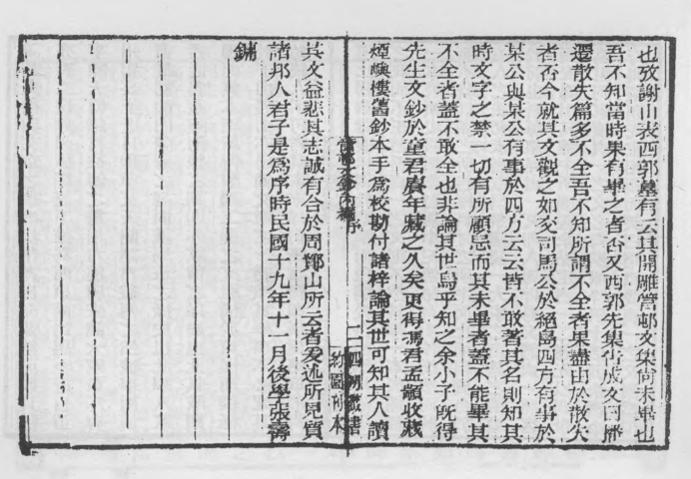 也攷謝山表西郭墓有云其開雕管邨文集尚未畢也
吾不知當時果有畢之者否又西郭先集告成文曰屢
遷散失篇多不全吾不知所謂不全者果盡由於散失
者否今就其文觀之如交司馬公於絕島四方有事於
某公與某公有事於四方云云皆不敢著其名則知其
時文字之禁一切有所顧忌而其未畢者蓋不能畢其
不全者蓋不敢全也非論其世烏乎知之余小子既得
先生文鈔於童君賡年藏之久矣更得馮君孟顓收藏
煙嶼樓舊鈔本手為校勘付諸梓論其世可知其人讀
管邨文鈔內編 序 二 四明叢書 約園刊本
其文益悲其志誠有合於周鄮山所云者爰述所見質
諸邦人君子是為序時民國十九年十一月後學張壽
鏞